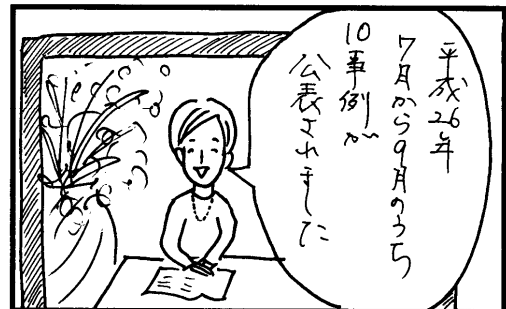 平成26年
7月から9月のうち
10事例が
公表されました